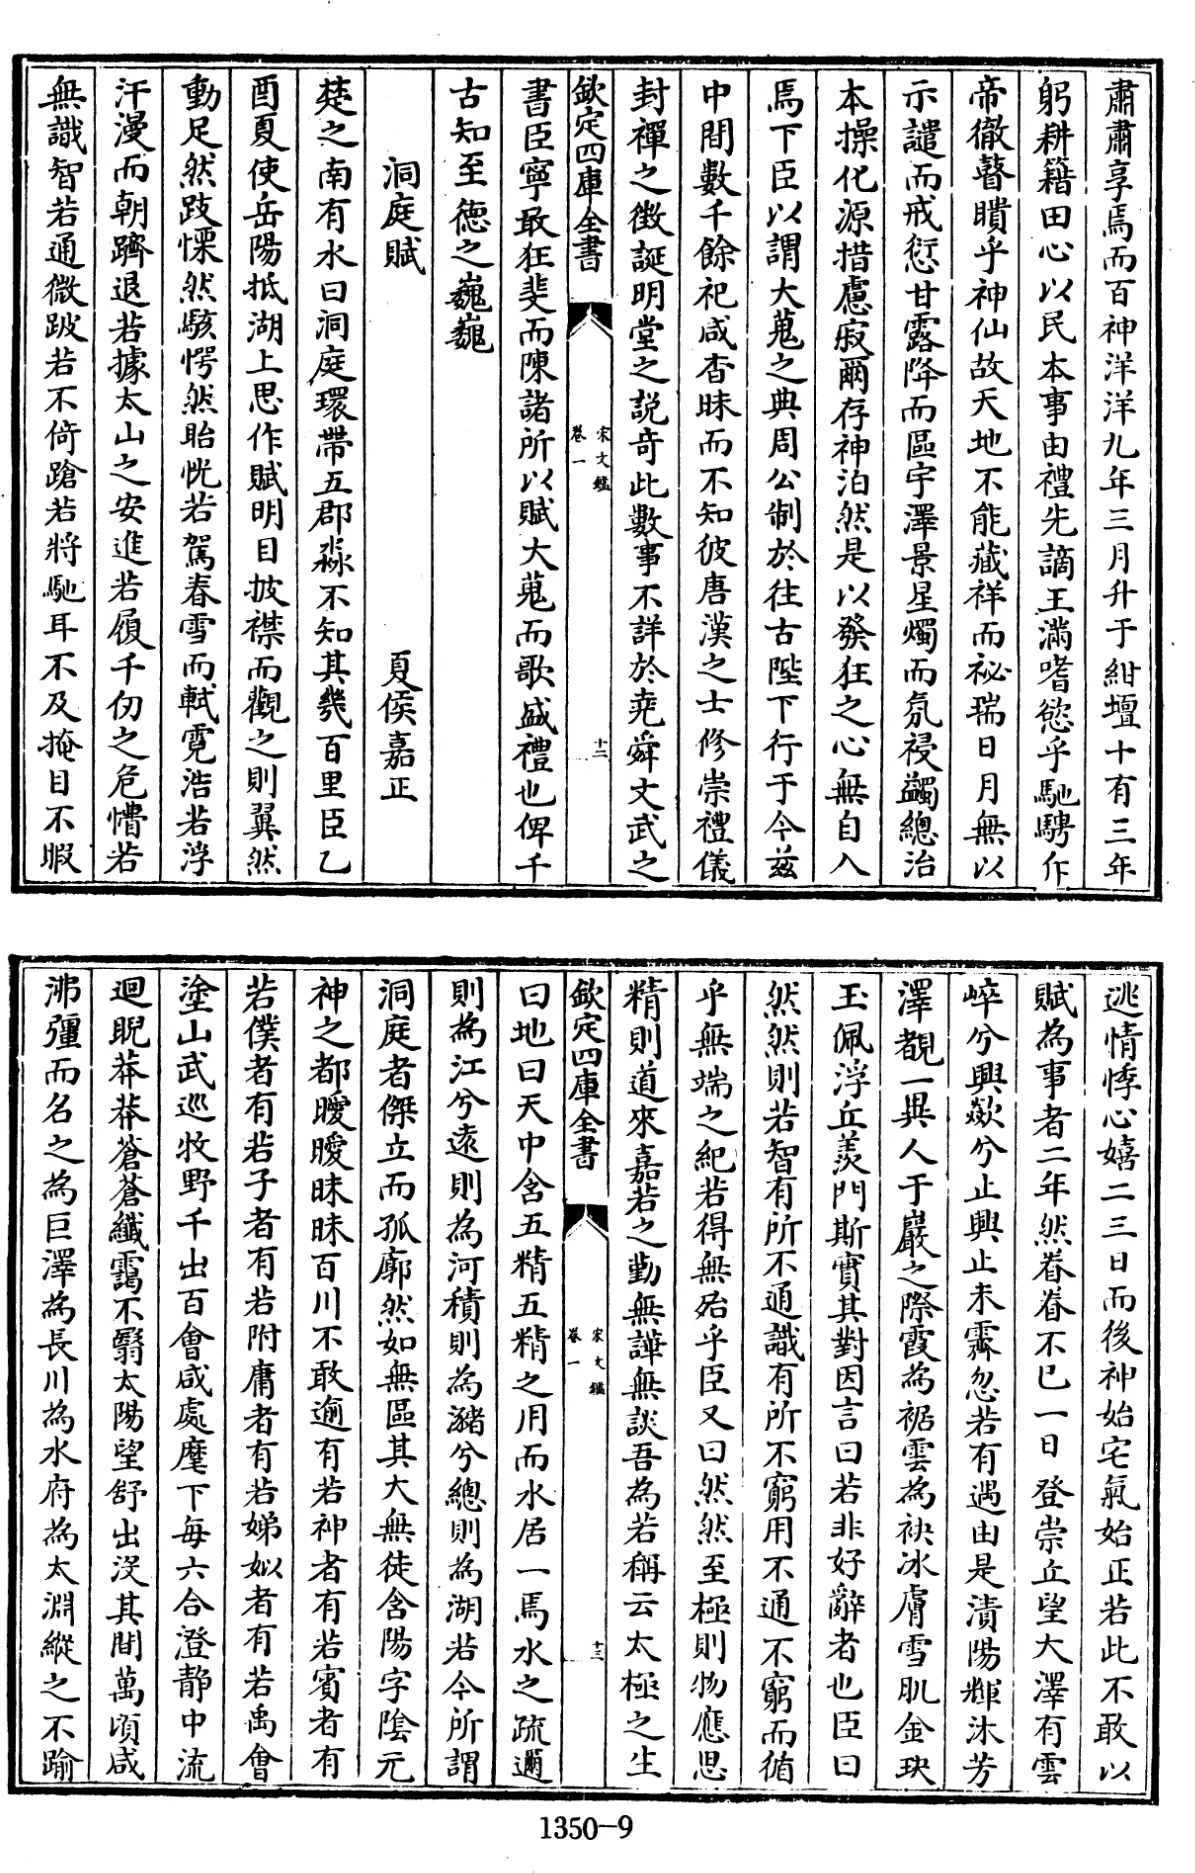 肅肅享焉而百神洋洋九年三月升于紺壇十有三年
躬耕籍田心以民本事由禮先謫王滿嗜慾乎馳騁作
帝徹瞽瞶乎神仙故天地不能藏祥而祕瑞日月無以
示譴而戒愆甘露降而區宇澤景星燭而氛祲蠲總治
本操化源措慮寂爾存神泊然是以發狂之心無自入
焉下臣以謂大蒐之典周公制於往古陛下行于今茲
中間數千餘祀咸杳昧而不知彼唐漢之士修崇禮儀
封禪之徴誕明堂之説奇此數事不詳於堯舜文武之
欽定四庫全書
宋文鑑
卷一
十二
書臣寧敢狂斐而陳諸所以賦大蒐而歌盛禮也俾千
古知至德之巍巍
洞庭賦 夏侯嘉正
楚之南有水曰洞庭環帶五郡淼不知其幾百里臣乙
酉夏使岳陽抵湖上思作賦明日披襟而觀之則翼然
動足然跂慄然駭愕然眙怳若駕春雪而軾霓浩若浮
汗漫而朝躋退若據太山之安進若履千仞之危懵若
無識智若通微跛若不倚蹌若將馳耳不及掩目不暇
逃情悸心嬉二三日而後神始宅氣始正若此不敢以
賦為事者二年然眷眷不已一日登崇丘望大澤有雲
崪兮興歘兮止興止未霽忽若有遇由是漬陽輝沐芳
澤覩一異人于巖之際霞為裾雲為袂冰膚雪肌金玦
玉佩浮丘羨門斯實其對因言曰若非好辭者也臣曰
然然則若智有所不通識有所不窮用不通不窮而循
乎無端之紀若得無殆乎臣又曰然然至極則物應思
精則道來嘉若之勤無譁無談吾為若稱云太極之生
欽定四庫全書
宋文鑑
卷一
十三
曰地曰天中含五精五精之用而水居一焉水之疏邇
則為江兮遠則為河積則為瀦兮總則為湖若今所謂
洞庭者傑立而孤廓然如無區其大無徒含陽字陰元
神之都曖曖昧昧百川不敢逾有若神者有若賓者有
若僕者有若子者有若附庸者有若娣姒者有若禹會
塗山武巡牧野千出百會咸處麾下每六合澄静中流
迴睨莽莽蒼蒼纖靄不翳太陽望舒出沒其間萬頃咸
沸彊而名之為巨澤為長川為水府為太淵縱之不踰
1350-9